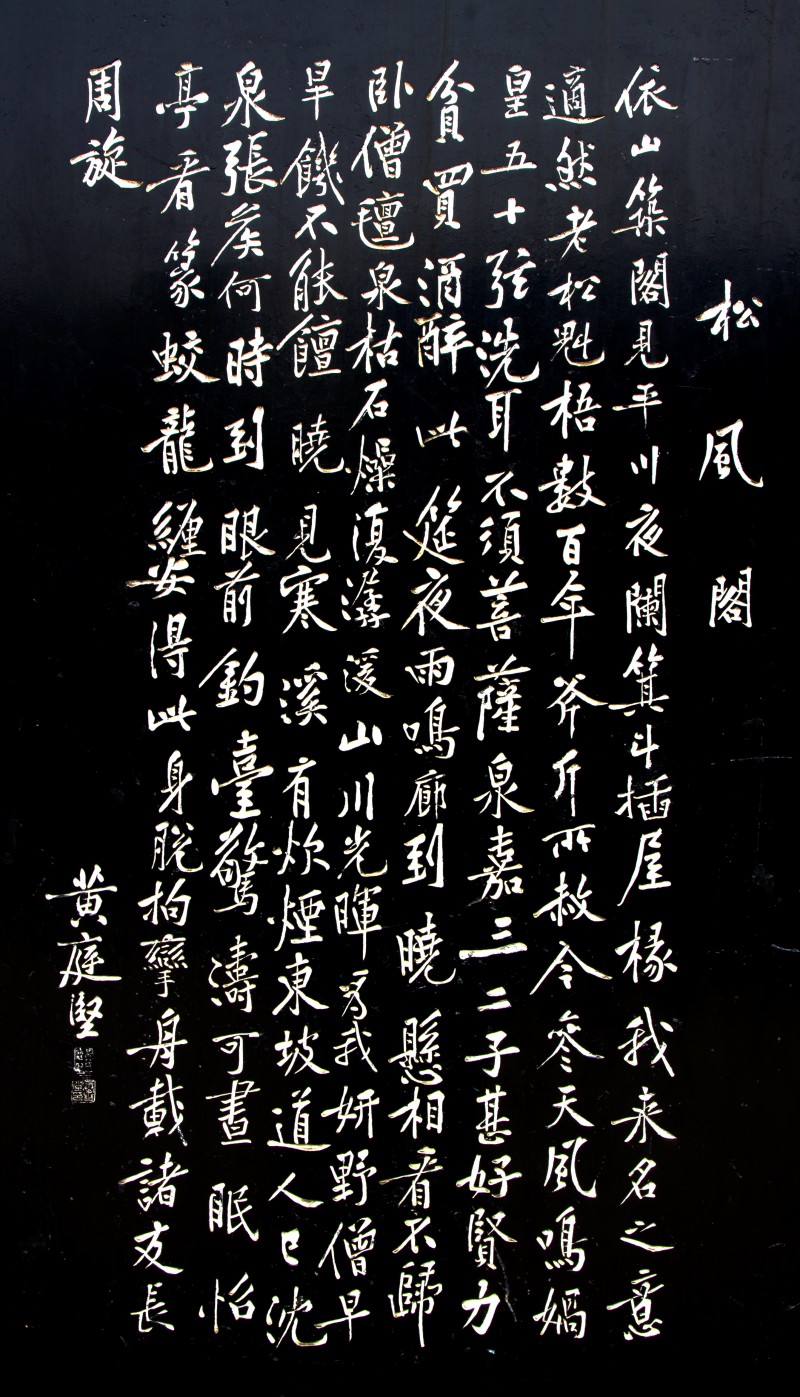 松風閣
依山築閣見平川夜闌箕斗插屋椽我来名之意
適然老松魁梧數百年斧斤所赦今參天風鳴媧
皇五十弦洗耳不須菩薩泉嘉三二子甚好賢力
貧買酒醉此筵夜雨鳴廊到曉懸相看不歸
卧僧氊泉枯石燥復潺湲山川光暉為我妍野僧早
旱饑不能饘曉見寒溪有炊煙東坡道人已沈
泉張侯何時到眼前釣臺驚濤可晝眠怡
亭看篆蛟龍纏安得此身脫拘攣舟載諸友長
周旋
黄庭堅